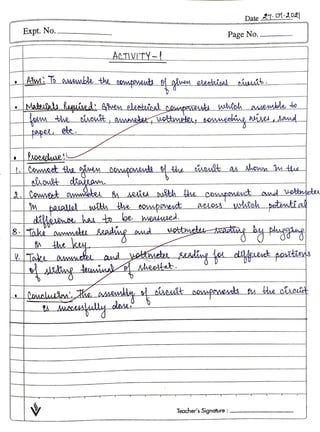 Date 27-07-2021
Expt. No.
Page No.
ACTIVITY-1
• Aim: To assemble the components of given electrical circuit.
• Materials Required: Given electrical components which assemble to
form the circuit, ammeter, voltmeter, connecting wires, sand
paper, etc.
• Procedure:
1. Connect the given components of the circuit as shown in the
circuit diagram.
2. Connect ammeter in series with the component and voltmeter
in parallel with the component across which potential
difference has to be measured.
3. Take ammeter reading and voltmeter reading by plugging
in the key.
4. Take ammeter and voltmeter reading for different positions
of sliding terminal of rheostat.
• Conclusion: The assembly of circuit components in the circuit
is successfully done.
Teacher's Signature :